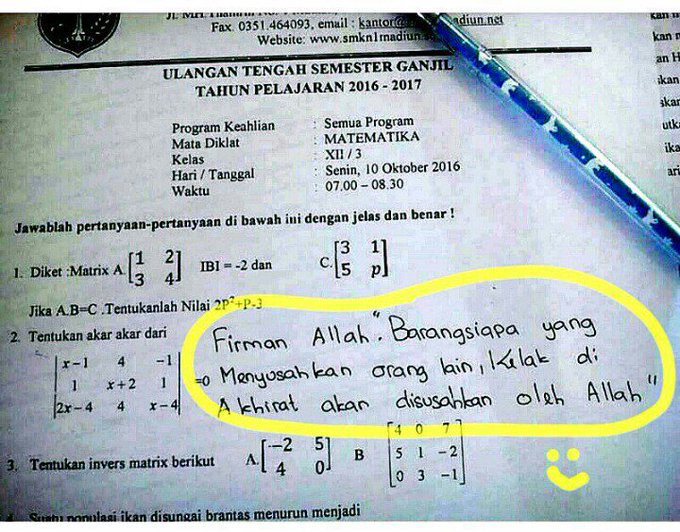 Fax. 0351.464093, email : kantor@ adiun.net
Website: www.smkn1madiun
ULANGAN TENGAH SEMESTER GANJIL
TAHUN PELAJARAN 2016 - 2017
Program Keahlian : Semua Program
Mata Diklat : MATEMATIKA
Kelas : XII / 3
Hari / Tanggal : Senin, 10 Oktober 2016
Waktu : 07.00 – 08.30
Jawablah pertanyaan-pertanyaan di bawah ini dengan jelas dan benar !
1. Diket :Matrix A. [1 2
3 4] IBI = -2 dan C. [3 1
5 p]
Jika A.B=C .Tentukanlah Nilai 2P²+P-3
2. Tentukan akar akar dari
|x-1 4 -1|
|1 x+2 1| =0
|2x-4 4 x-4|
Firman Allah : "Barangsiapa yang
Menyusahkan orang lain, Kelak di
Akhirat akan disusahkan oleh Allah"
3. Tentukan invers matrix berikut A. [-2 5
4 0] B [4 0 7
5 1 -2
0 3 -1]
4. Suatu populasi ikan disungai brantas menurun menjadi